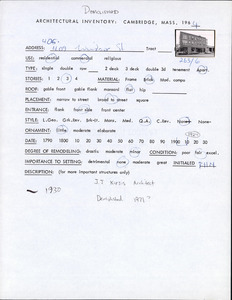 Demolished
ARCHITECTURAL INVENTORY: CAMBRIDGE, MASS. 196
ADDRESS: St Tract
USE: residential commercial religious
TYPE: single double row 2 deck 3 deck double 3d tenement apart.
STORIES: 1 2 3 4 MATERIAL: Frame Brick Mod. comps
ROOF: gable front gable flank mansard flat hip
PLACEMENT: narrow to street broad to street square
ENTRANCE: flank front side front center
ORNAMENT: little moderate elaborate
DATE: 1790 1800 10 20 30 40 50 60 70 80 90 1900 10 20 30
DEGREE OF REMODELING: drastic moderate minor CONDITION: poor fair excel.
IMPORTANCE TO SETTING: detrimental none moderate great INITIALED
DESCRIPTION: (for more important structures only)
~ 1930
Architect
Demolished